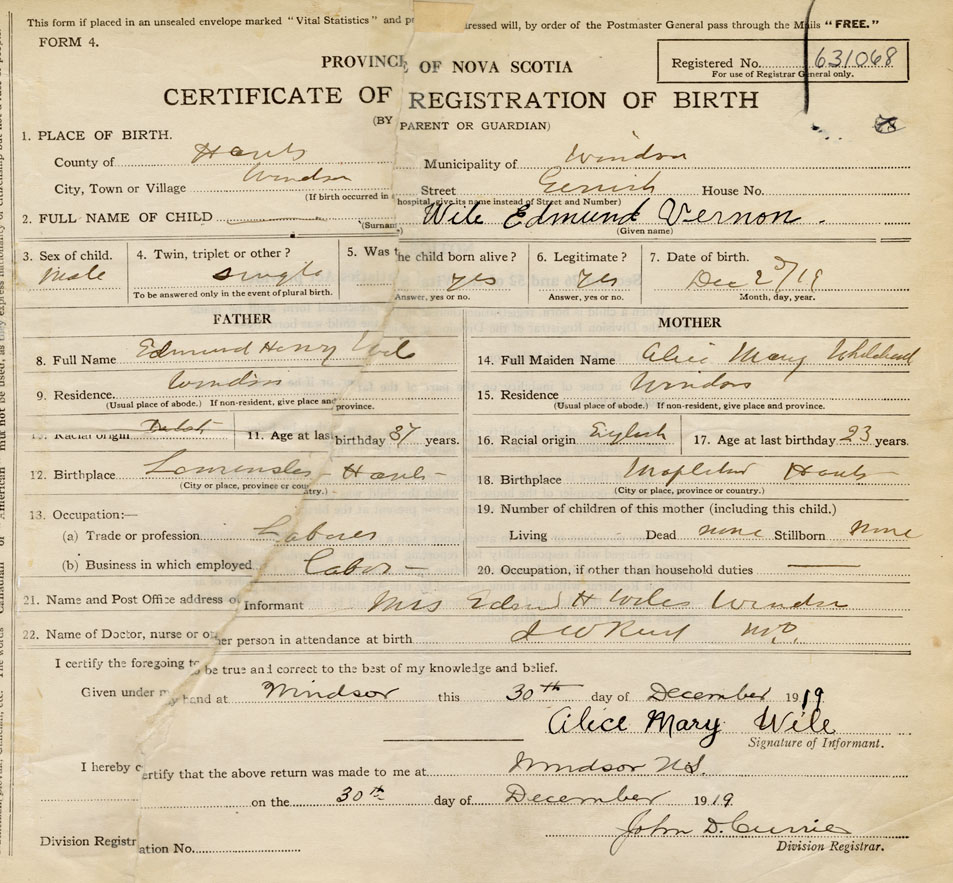 This form if placed in an unsealed envelope marked "Vital Statistics" and ressed will, by order of the Postmaster General pass through the Mails "FREE."
FORM 4.
Registered No. 631068
For use of Registrar General only.
PROVINCE OF NOVA SCOTIA
CERTIFICATE OF REGISTRATION OF BIRTH
(BY PARENT OR GUARDIAN)
1. PLACE OF BIRTH.
County of Hants Municipality of Windsor
City, Town or Village Windsor Street House No.
(If birth occurred in hospital, give its name instead of Street and Number)
2. FULL NAME OF CHILD Wile Edmund Vernon.
(Surname) (Given name)
3. Sex of child. Male 4. Twin, triplet or other? single 5. Was the child born alive? yes 6. Legitimate? Yes 7. Date of birth. Dec 19
To be answered only in the event of plural birth. Answer, yes or no. Answer, yes or no. Month, day, year.
FATHER MOTHER
8. Full Name Edmund Henry Wile 14. Full Maiden Name Alice Mary
9. Residence. Windsor 15. Residence Windsor
(Usual place of abode.) If non-resident, give place and province. (Usual place of abode.) If non-resident, give place and province.
Racial origin 11. Age at last birthday 37 years. 16. Racial origin English 17. Age at last birthday 23 years.
12. Birthplace Hants 18. Birthplace Hants
(City or place, province or country.) (City or place, province or country.)
13. Occupation:— 19. Number of children of this mother (including this child.)
(a) Trade or profession Laborer Living Dead none Stillborn None
(b) Business in which employed Labor 20. Occupation, if other than household duties
21. Name and Post Office address of Informant Mrs H Wile Windsor
22. Name of Doctor, nurse or other person in attendance at birth M.D.
I certify the foregoing to be true and correct to the best of my knowledge and belief.
Given under my hand at Windsor this 30th day of December 1919
Alice Mary Wile
Signature of Informant.
I hereby certify that the above return was made to me at Windsor N.S.
on the 30th day of December 1919.
John D. Currie
Division Registration No. Division Registrar.